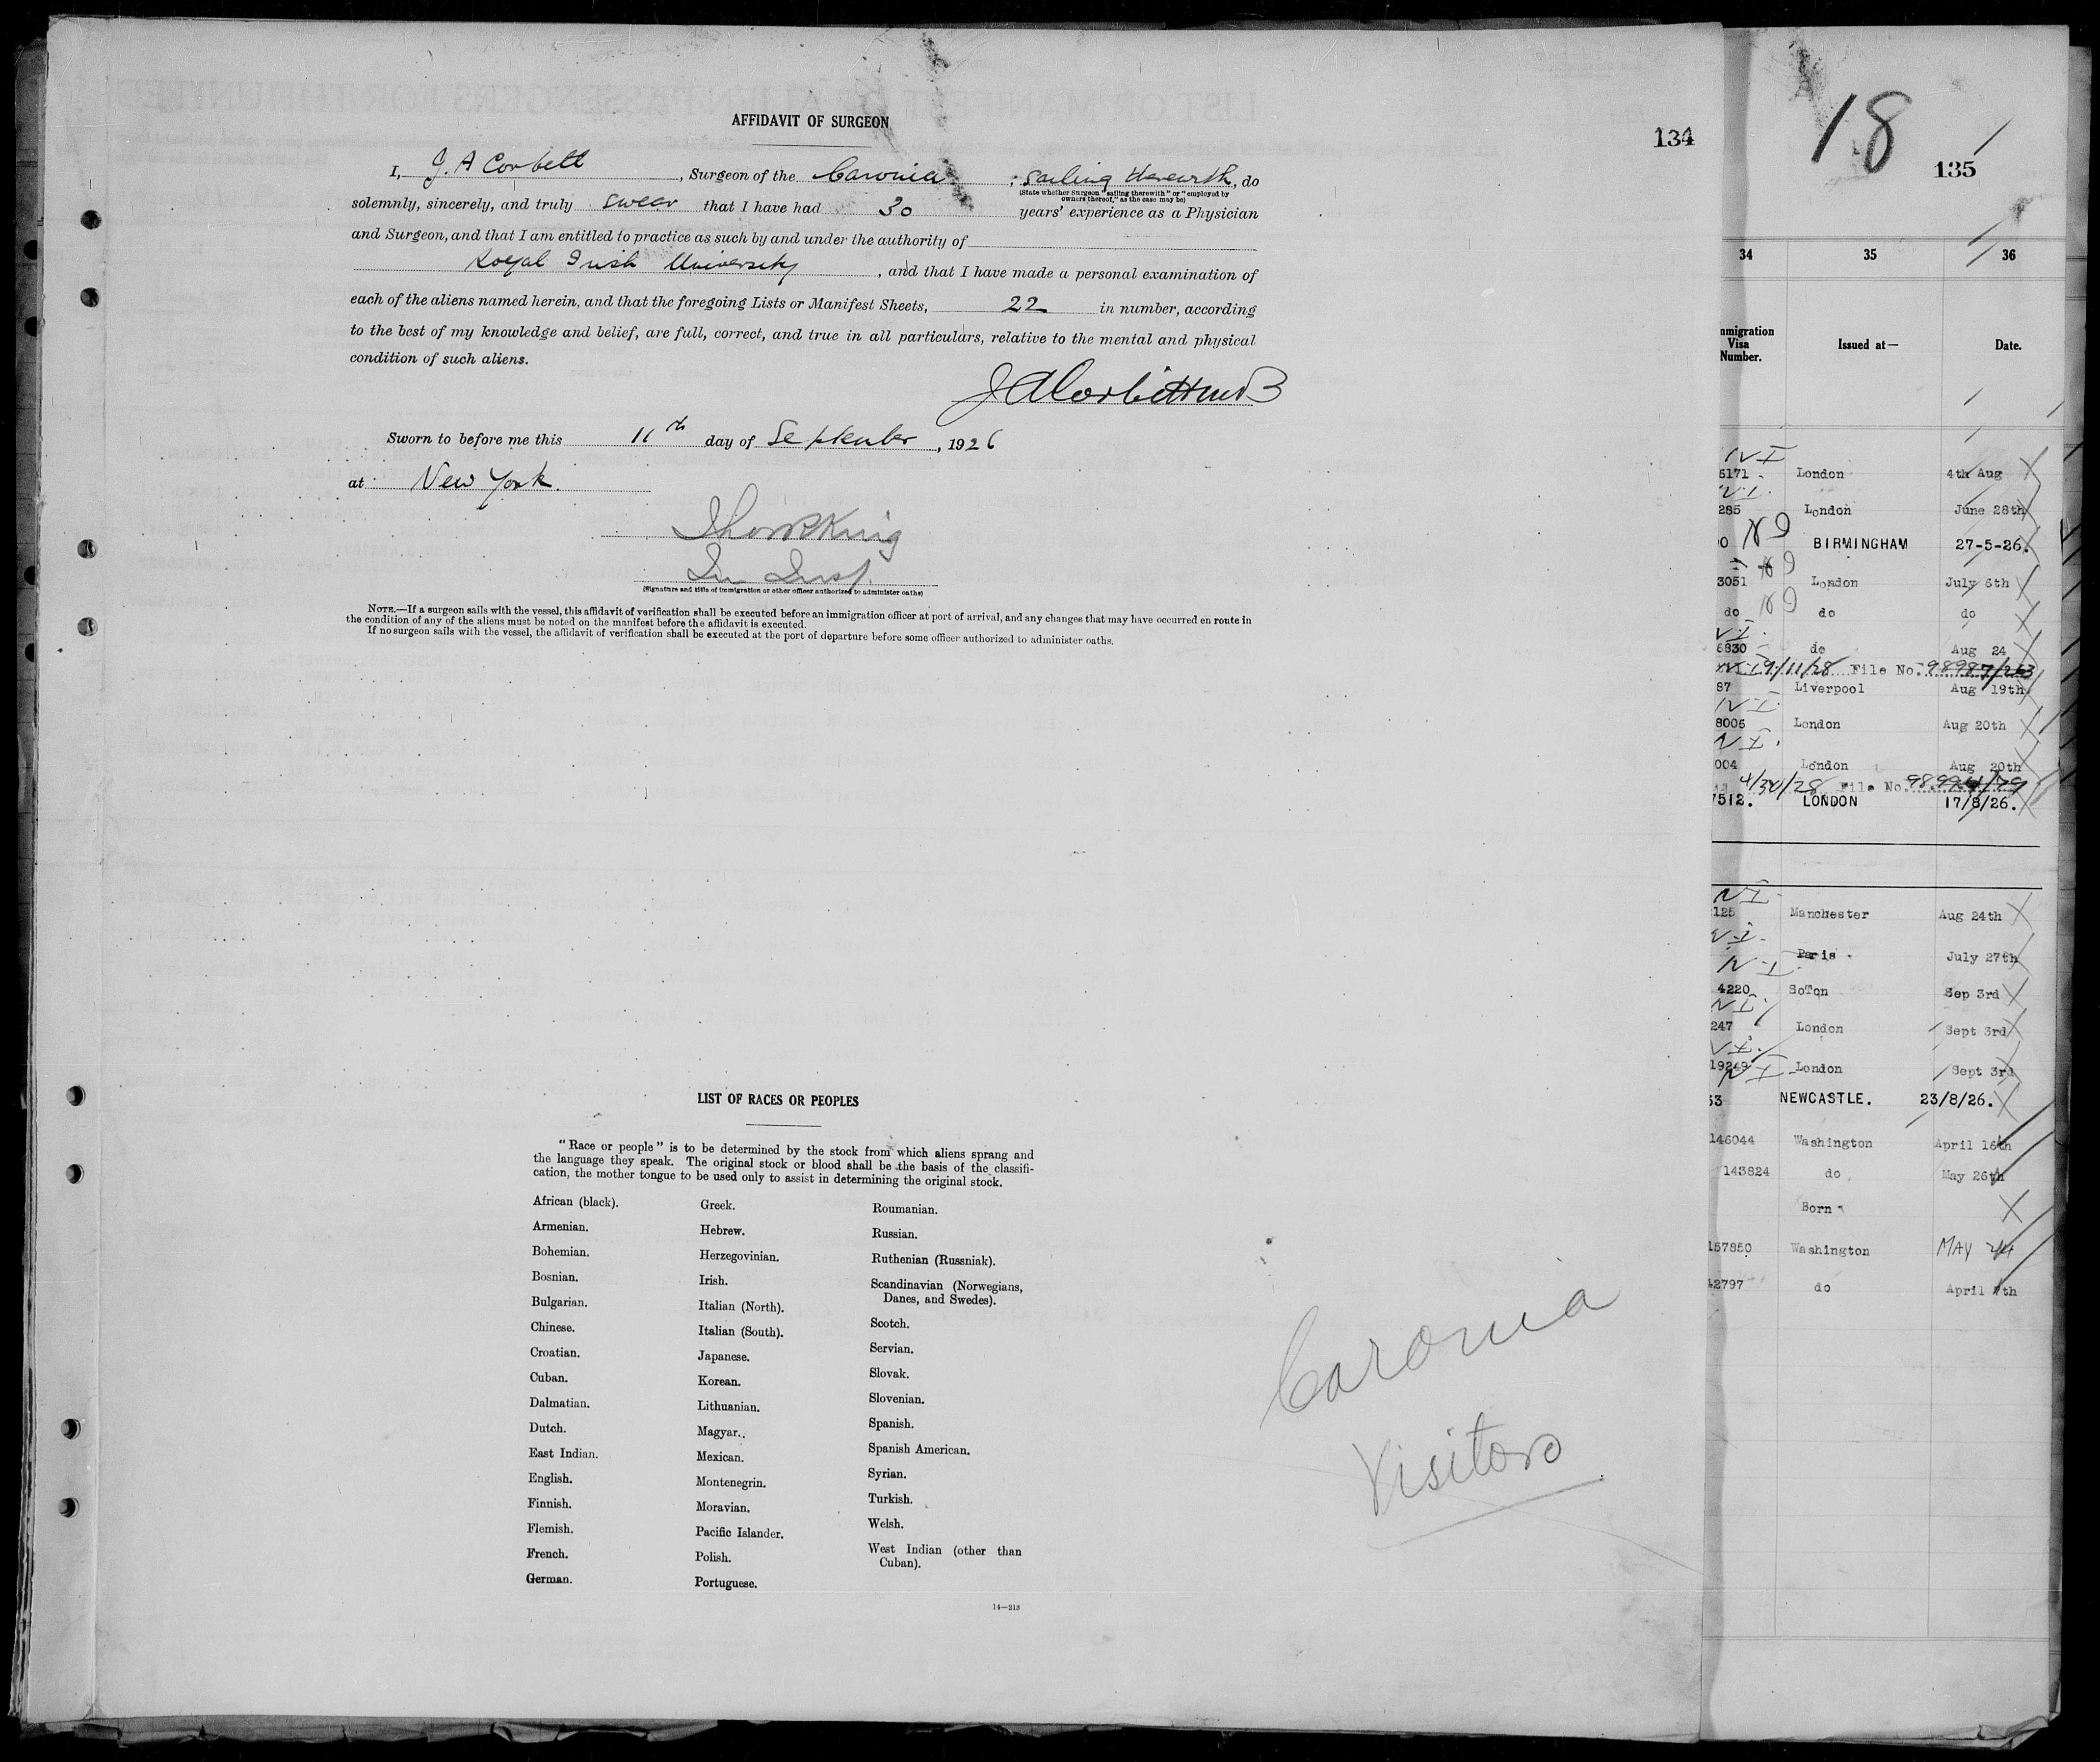 AFFIDAVIT OF SURGEON
134
I, J. A Corbett, Surgeon of the Caronia; sailing therewith, do
(State whether Surgeon "sailing therewith" or "employed by
owners thereof," as the case may be)
solemnly, sincerely, and truly swear that I have had 30 years' experience as a Physician
and Surgeon, and that I am entitled to practice as such by and under the authority of
Royal Irish University, and that I have made a personal examination of
each of the aliens named herein, and that the foregoing Lists or Manifest Sheets, 22 in number, according
to the best of my knowledge and belief, are full, correct, and true in all particulars, relative to the mental and physical
condition of such aliens.
J A Corbett MB
Sworn to before me this 11th day of September, 1926
at New York.
(Signature and title of immigration or other officer authorized to administer oaths)
NOTE.—If a surgeon sails with the vessel, this affidavit of verification shall be executed before an immigration officer at port of arrival, and any changes that may have occurred en route in
the condition of any of the aliens must be noted on the manifest before the affidavit is executed.
If no surgeon sails with the vessel, the affidavit of verification shall be executed at the port of departure before some officer authorized to administer oaths.
LIST OF RACES OR PEOPLES
"Race or people" is to be determined by the stock from which aliens sprang and
the language they speak. The original stock or blood shall be the basis of the classifi-
cation, the mother tongue to be used only to assist in determining the original stock.
African (black).
Armenian.
Bohemian.
Bosnian.
Bulgarian.
Chinese.
Croatian.
Cuban.
Dalmatian.
Dutch.
East Indian.
English.
Finnish.
Flemish.
French.
German.
Greek.
Hebrew.
Herzegovinian.
Irish.
Italian (North).
Italian (South).
Japanese.
Korean.
Lithuanian.
Magyar.
Mexican.
Montenegrin.
Moravian.
Pacific Islander.
Polish.
Portuguese.
Roumanian.
Russian.
Ruthenian (Russniak).
Scandinavian (Norwegians,
Danes, and Swedes).
Scotch.
Servian.
Slovak.
Slovenian.
Spanish.
Spanish American.
Syrian.
Turkish.
Welsh.
West Indian (other than
Cuban).
14—213
Caronia
Visitors
18
135
34 35 36
Visa
Number.
Issued at—
Date.
NI
6171 London 4th Aug
NI
285 London June 28th
NI
BIRMINGHAM 27-5-26.
NI
3051 London July 6th
NI
do do do
NI
6830 do Aug 24
9/11/28 File No. 98987/263
87 Liverpool Aug 19th
NI
8005 London Aug 20th
NI
004 London Aug 20th
4/30/28 File No.
7512. LONDON 17/8/26.
NI
125 Manchester Aug 24th
NI
Paris July 27th
NI
4220 SoTon Sep 3rd
NI
247 London Sept 3rd
NI
19249 London Sept 3rd
NI
53 NEWCASTLE. 23/8/26.
146044 Washington April 16th
143824 do May 26th
Born
157850 Washington MAY 24
42797 do April 7th